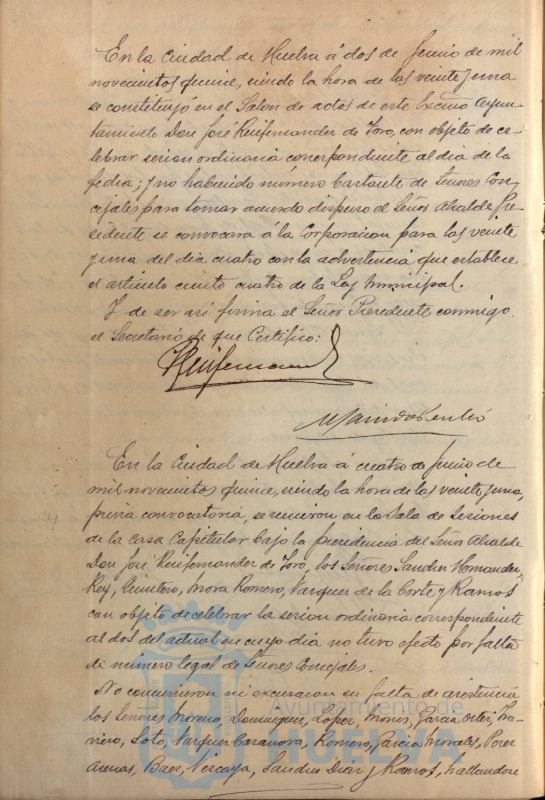 En la Ciudad de Huelva á dos de Junio de mil
novecientos quince, siendo la hora de las veinte y una
se constituyó en el Salon de actos de este Excmo Ayun-
tamiento Don José Ruifernandez de Toro, con objeto de ce-
lebrar sesion ordinaria correspondiente al dia de la
fecha; y no habiendo número bastante de Señores Con-
cejales para tomar acuerdo dispuso el Señor Alcalde Pre-
sidente se convocara á la Corporacion para las veinte
y una del dia cuatro con la advertencia que establece
el articulo ciento cuatro de la Ley Municipal.
Y de ser asi firma el Señor Presidente conmigo
el Secretario de que Certifico:
Ruifernandez
En la Ciudad de Huelva á cuatro de Junio de
mil novecientos quince, siendo la hora de las veinte y una,
previa convocatoria, se reunieron en la Sala de Sesiones
de la Casa Capitular bajo la presidencia del Señor Alcalde
Don José Ruifernandez de Toro, los Señores Sanchez Hernandez,
Rey, Quintero, Mora Romero, Vazquez de la Corte y Ramos
con objeto de celebrar la sesion ordinaria correspondiente
al dos del actual en cuyo dia no tuvo efecto por falta
de número legal de Señores Concejales.
No concurrieron ni excusaron su falta de asistencia
los Señores Moreno, Dominguez, Lopez, Garcia Ortiz,
Soto, Vazquez Casanova, Romero, Garcia Morales, Perez
Arenas, Baez, Vizcaya, Sanchez Diaz y Ramos, hallandose
Ayuntamiento de
HUELVA